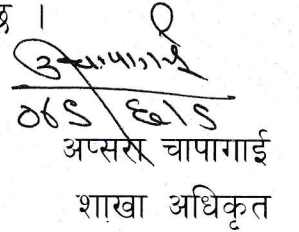 छ ।
०४९ । ६ । ९
अप्सरा चापागाई
शाखा अधिकृत